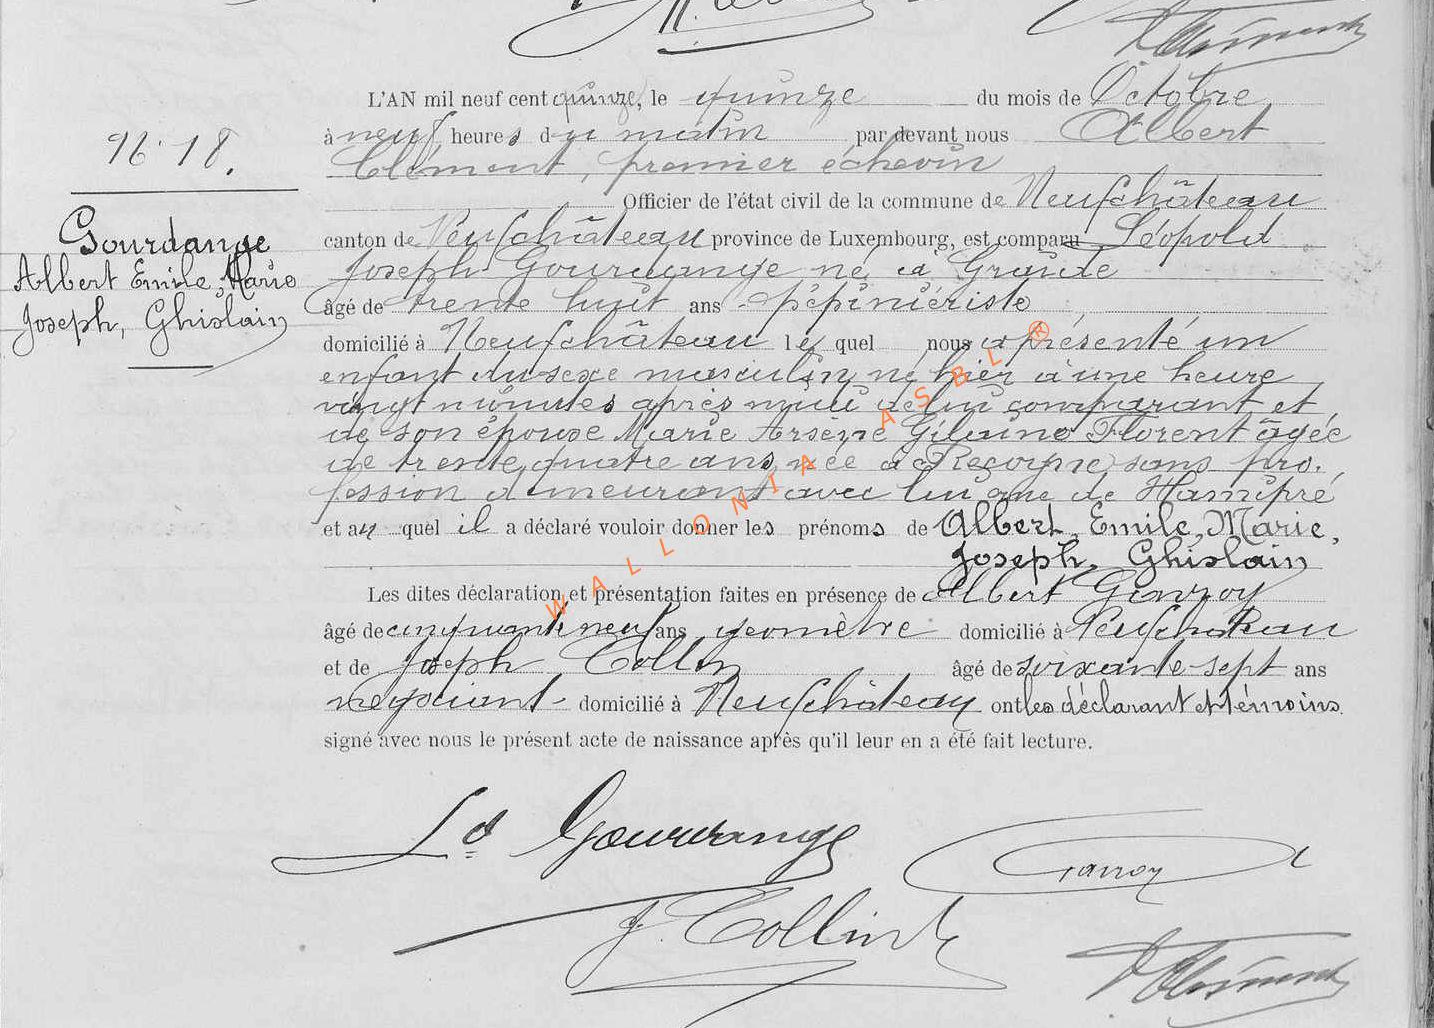 L'AN mil neuf cent quinze, le quinze du mois de Octobre
à neuf heures du matin par devant nous Albert
Clément, premier échevin
Officier de l'état civil de la commune de Neufchâteau
canton de Neufchâteau province de Luxembourg, est comparu Léopold
Joseph Gourdange né à
âgé de trente huit ans pépiniériste
domicilié à Neufchâteau le quel nous a présenté un
enfant du sexe masculin, né hier à une heure
vingt minutes après midi de lui comparant et
de son épouse Marie Arsène Florent âgée
de trente quatre ans, née à sans pro-
fession demeurant avec lui de Hamipré
et au quel il a déclaré vouloir donner les prénoms de Albert, Emile, Marie,
Joseph, Ghislain
Les dites déclaration et présentation faites en présence de Albert
âgé de cinquante neuf ans géomètre domicilié à Neufchâteau
et de Joseph Collin âgé de soixante-sept ans
négociant domicilié à Neufchâteau ont les déclarant et témoins
signé avec nous le présent acte de naissance après qu'il leur en a été fait lecture.
Nº 18.
Gourdange
Albert Emile, Marie
Joseph, Ghislain
Ld Gourdange
J. Collin
AClément
WALLONIA ASBL ®